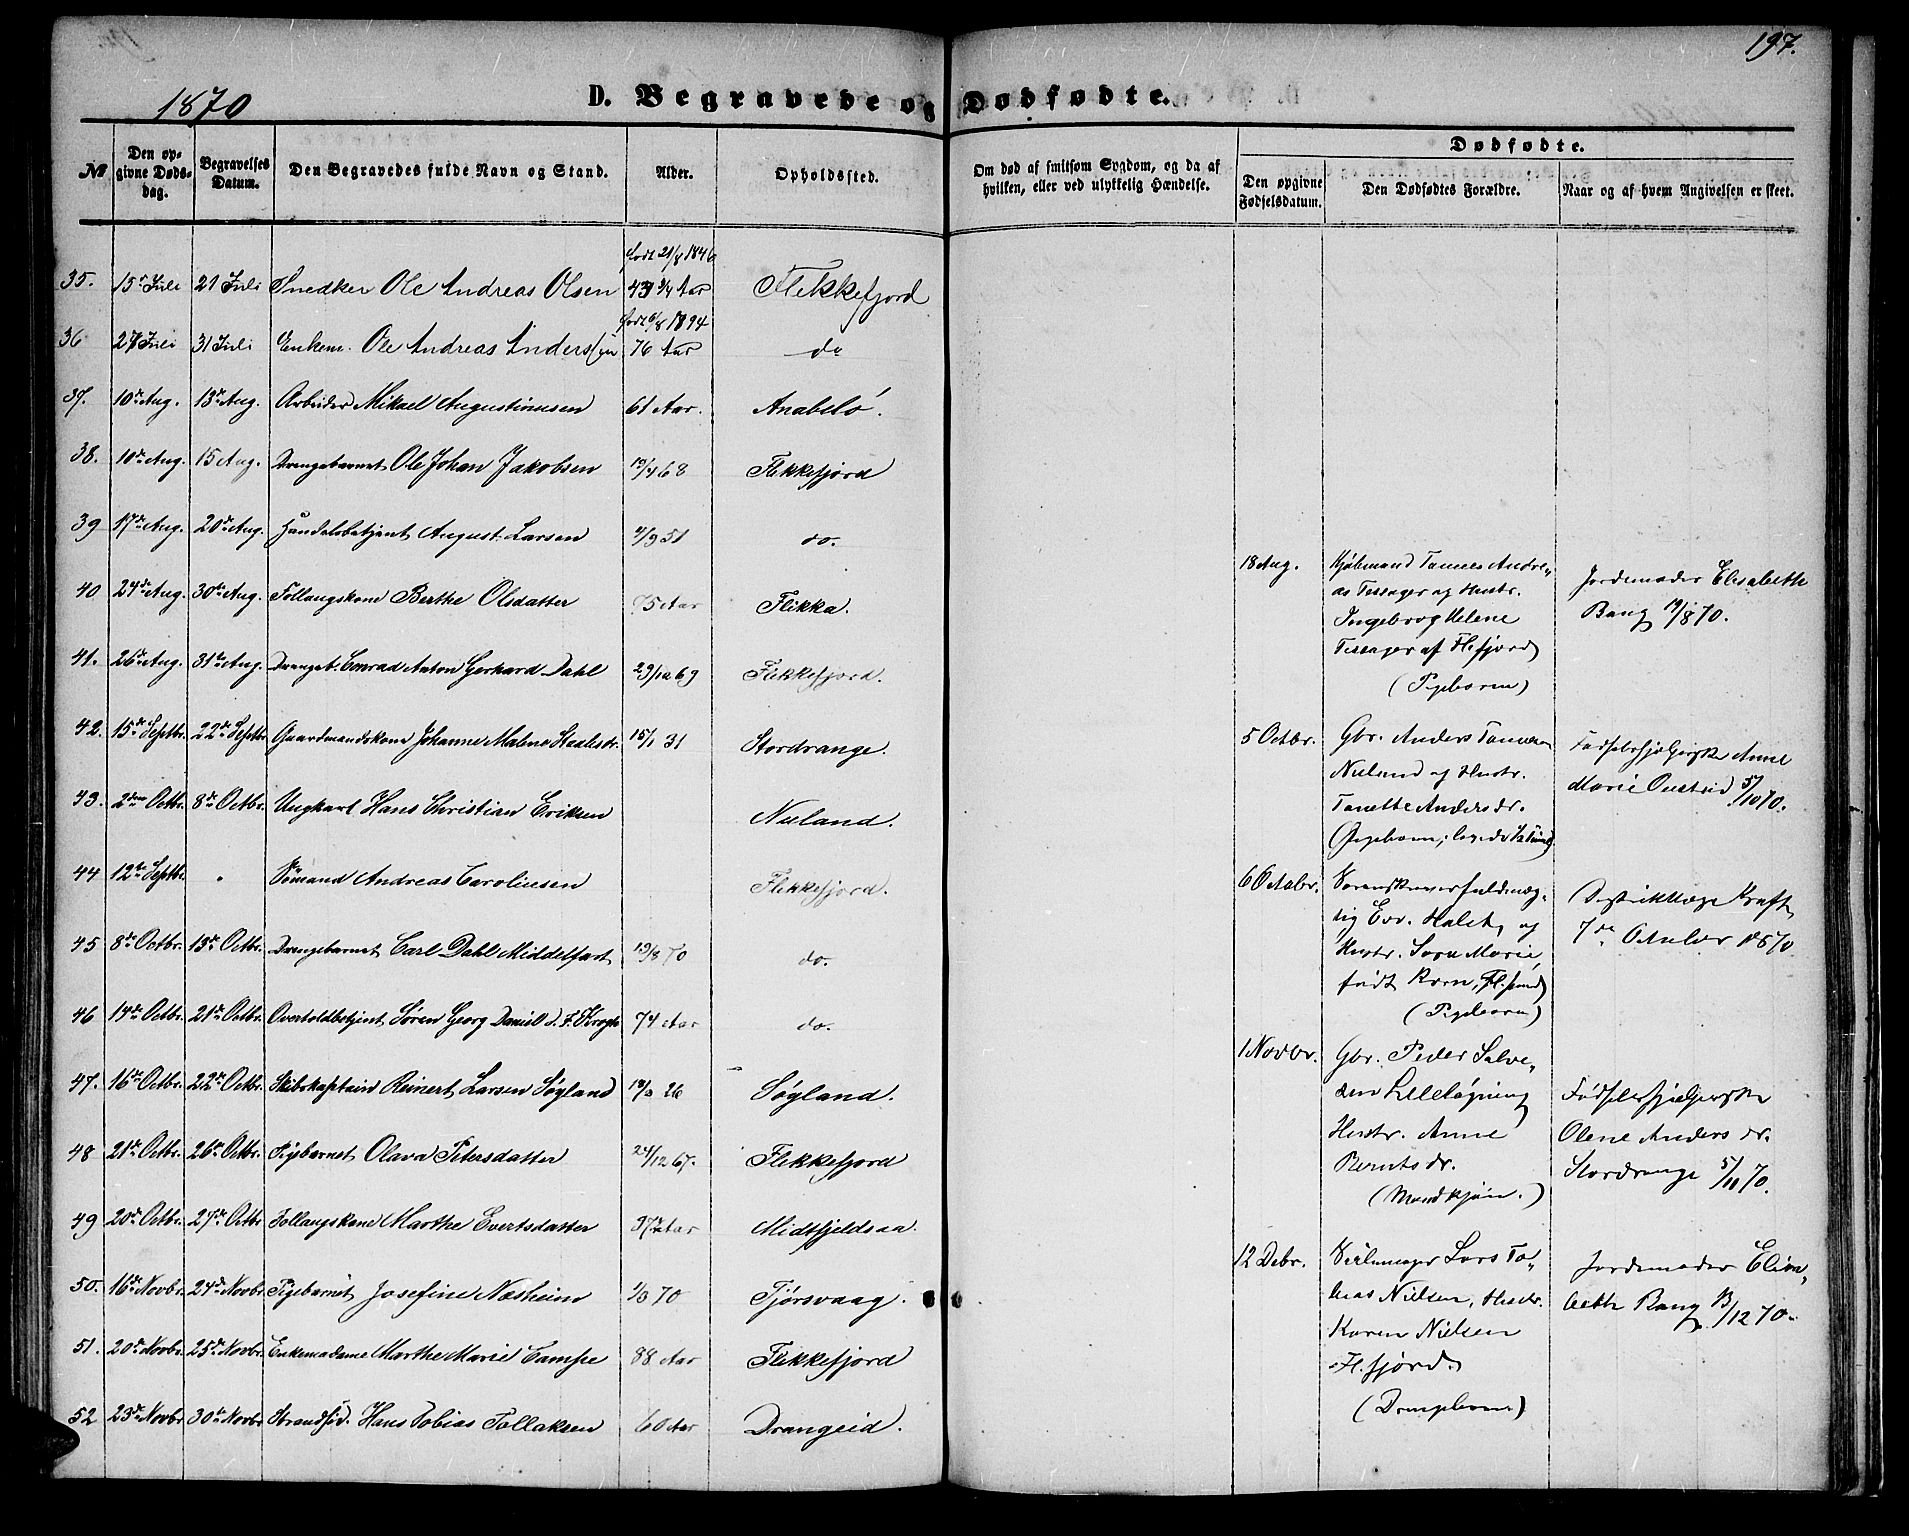 197.
1870
D. Begravede og Dødfødte.
№
Den opgivne Dødsdag.
Begravelses Datum.
Den Begravedes fulde Navn og Stand.
Alder.
Opholdssted.
Om død af smitsom Sygdom, og da af hvilken, eller ved ulykkelig Hændelse.
Dødfødte.
Den opgivne Fødselsdatum.
Den Dødfødtes Forældre.
Naar og af hvem Angivelsen er skeet.
35. 15 Juli 21 Juli Snedker Ole Andreas Olsen født 21/8 1846 3/4 Aar Flekkefjord
36 27 Juli 31 Juli Enkem. Ole Andreas Anderssen født 6/8 1894 76 Aar do
37. 10de Aug. 13de Aug. Arbeider Mikael Augustinusen 61 Aar. Anabelø.
38. 10de Aug. 15 Aug. Drengebarnet Ole Johan Jakobsen 19/4 68 Flekkefjord
39 17de Aug. 20de Aug. Handelsbetjent August Larsen 4/9 51 do.
40 24de Aug. 30te Aug. Follaugskone Berthe Olsdatter 75 Aar Flikka.
41. 26de Aug. 31te Aug. Drengeb. Conrad Anton Gerhard Dahl 29/12 69 Flekkefjord.
42. 15de Septbr. 22de Septbr. Gaardmandskone Johanne Malene Staalesdr. 15/1 31 Stordrange.
43. 2den Octbr. 8de Octbr. Ungkarl Hans Christian Eriksen Nuland.
44 12te Septbr. " Sømand Andreas Carolinsen Flekkefjord.
45 8de Octbr. 13de Octbr. Drengebarnet Carl Dahl Middelfart 19/8 70 do.
46 14de Octbr. 21de Octbr. Overtoldbetjent Søren Georg Daniel d. F. Krogh 74 Aar do.
47. 16de Octbr. 22de Octbr. Skibskaptain Reinert Larsen Søyland 26 Søyland.
48 21de Octbr. 26de Octbr. Pigebarnet Olava Petersdatter 24/12 67. Flekkefjord
49 20de Octbr. 27de Octbr. Follaugskone Marthe Evertsdatter Aar Midtfjeldsaa.
50. 16de Novbr. 24de Novbr. Pigebarnet Josefine Næsheim 70 Tjørsvaag.
51. 20de Novbr. 25de Novbr. Enkemadame Marthe Marie Campe 88 Aar Flekkefjord
52 23de Novbr. 30te Novbr. Strandsid. Hans Tobias Tollaksen 60 Aar Drangeid.
18 Aug.
Kjøbmand Tønnes Andre-
as Tessager og Hustr.
Ingeborg Helene
Tessager af Fl.fjord
(Pigebarn)
Jordemoder Elisabeth
Bang 19/8 70.
5 Octbr.
Gbr. Anders Tønnesen
Nuland og Hustr.
Tonette Andersdr.
(Pigebarn;
Fødselshjelperske Anne
Marie Oustad 5/10 70.
6 Octobr.
Sorenskriverfuldmæg-
tig Evr. Halck og
Hustr. Sara Marie,
født Korn, Fl.fjord
(Pigebarn)
Distriktslæge Kraft
7de October 1870
1 Novbr.
Gbr. Peder Salve-
sen Lilleløgning
Hustr. Anne
Berntsdr.
(Mandkjøn.)
Fødselshjelperske
Olene Andersdr.
Stordrange 5/11 70.
12 Debr.
Lars To-
bias Nielsen, Hustr.
Karen Nielsen
Fl.fjord.
(Drengebarn)
Jordemoder Elisa-
beth Bang 13/12 70.